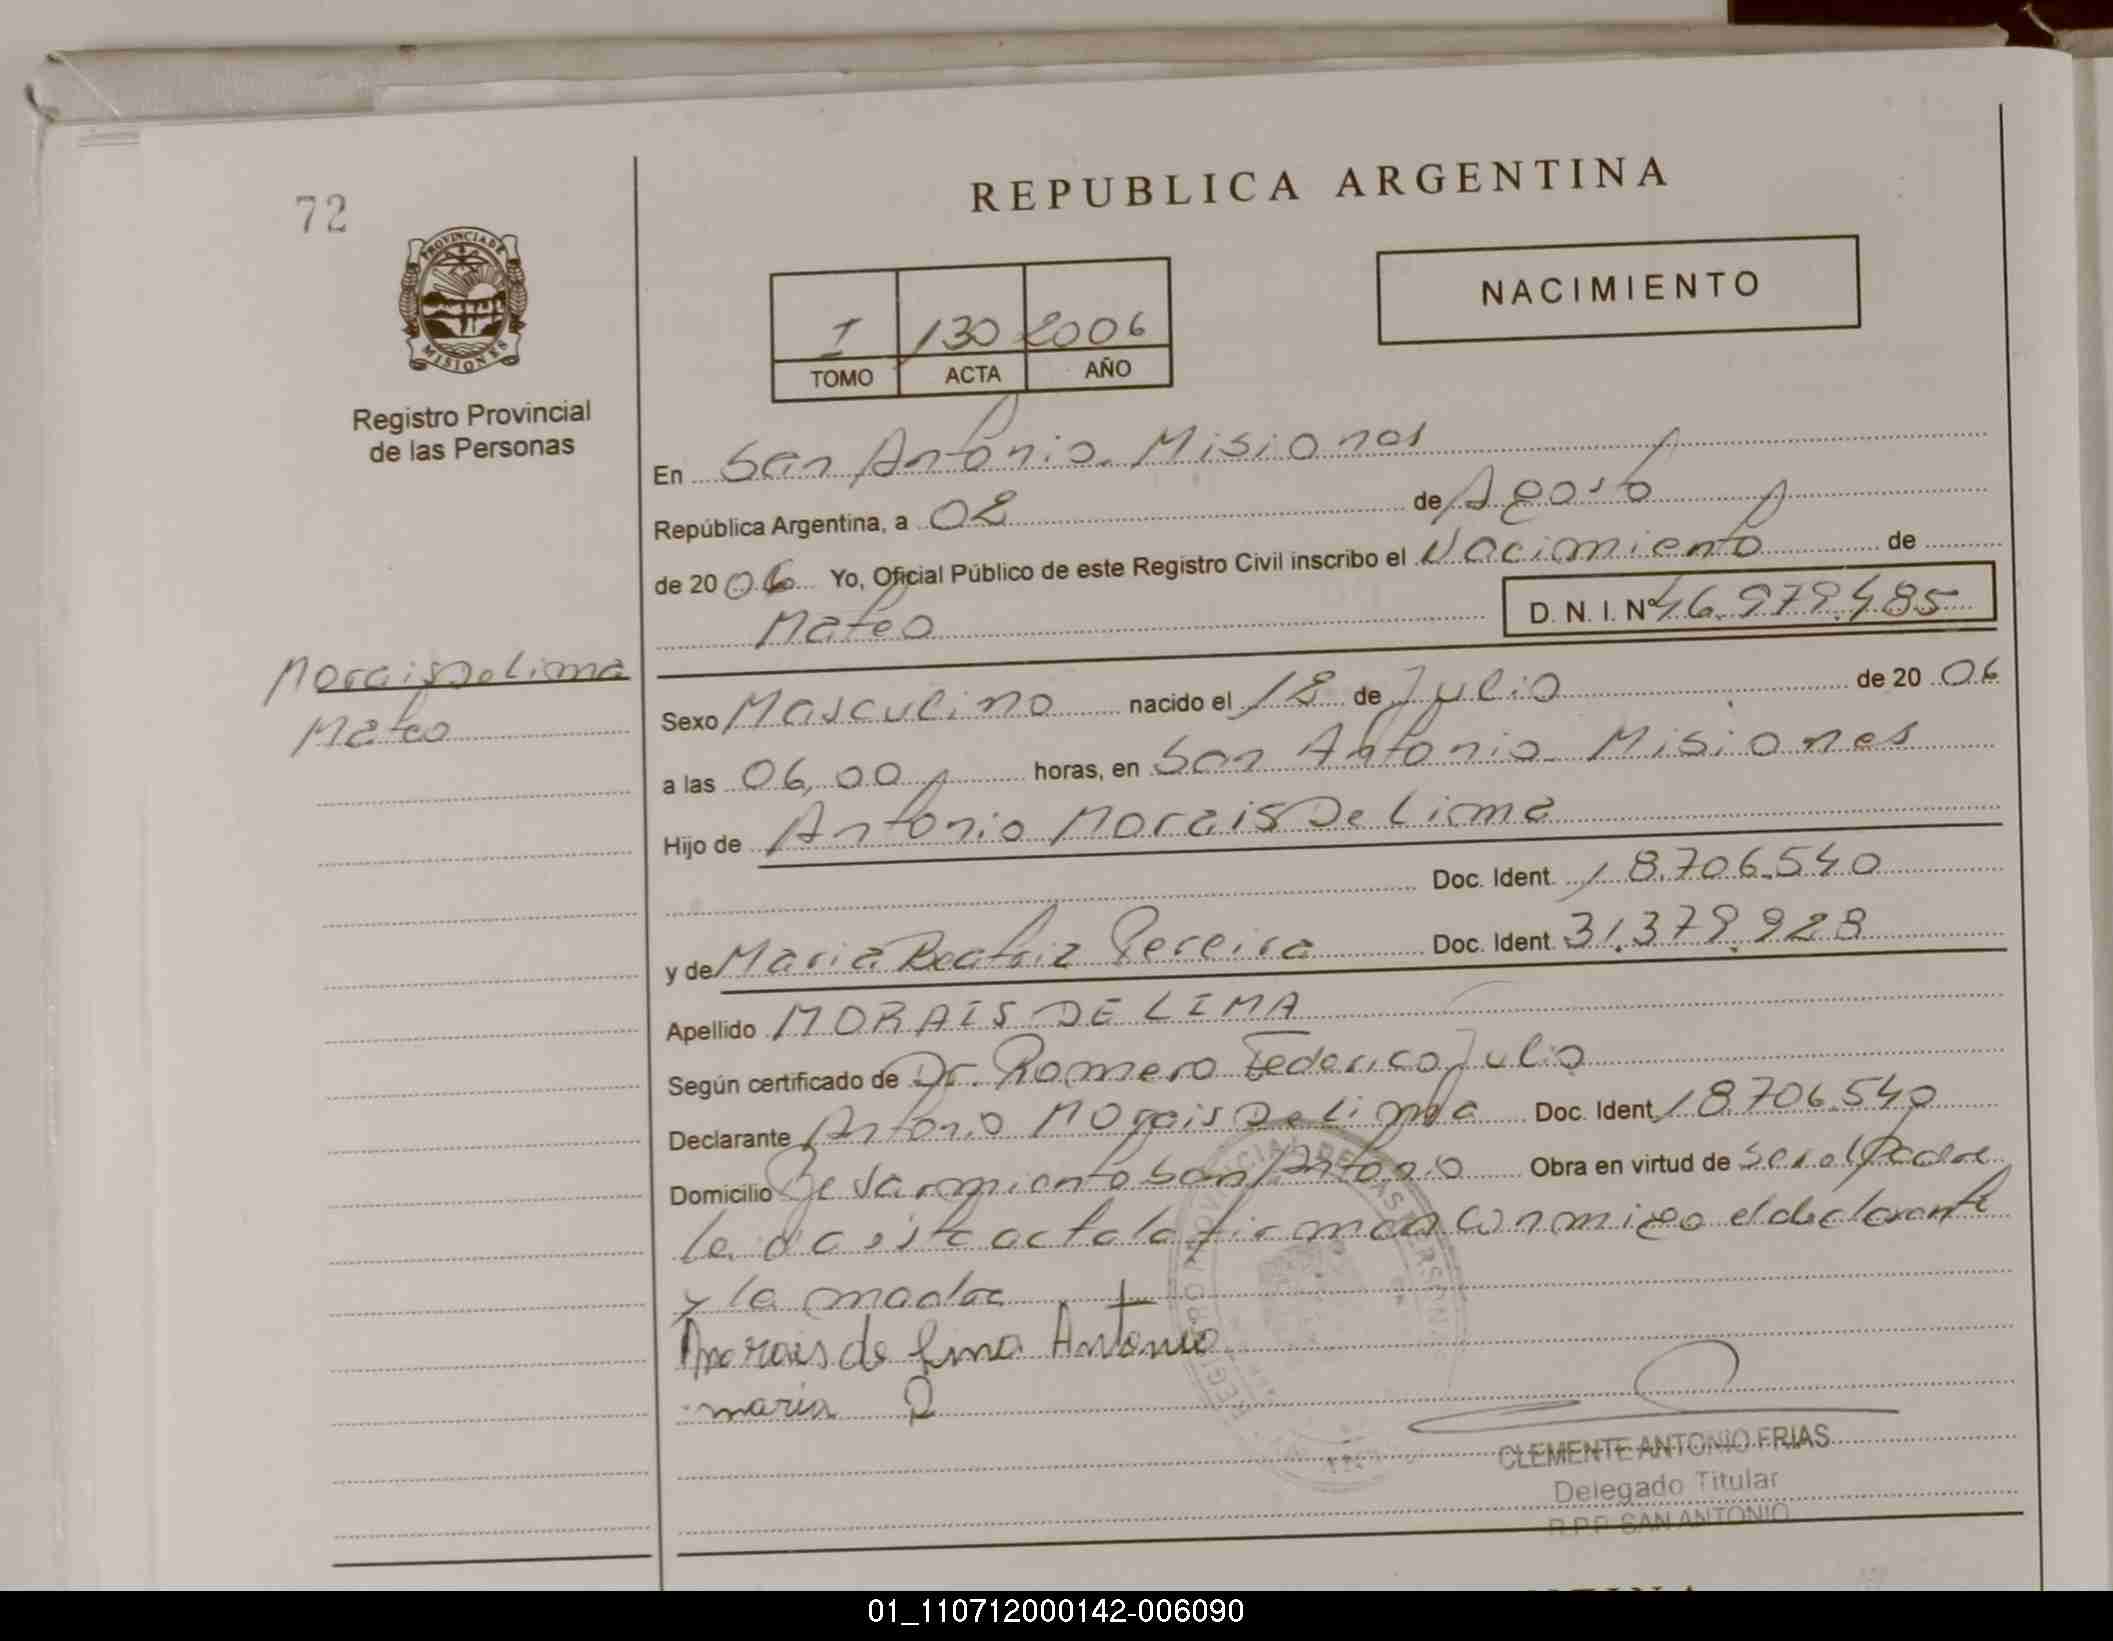 72
REPUBLICA ARGENTINA
PROVINCIA DE
MISIONES
NACIMIENTO
I 130 2006
TOMO ACTA AÑO
Registro Provincial
de las Personas
En San Antonio Misiones
República Argentina, a 02 de Agosto
de 2006 Yo, Oficial Público de este Registro Civil inscribo el Nacimiento de
Mateo D. N. I. Nº 46.979.485
Morais De Lima
Mateo
Sexo Masculino nacido el 18 de Julio de 2006
a las 06,00 horas, en San Antonio Misiones
Hijo de Antonio Morais De Lima
Doc. Ident. 18.706.540
y de Maria Beatriz Pereira Doc. Ident. 31.379.928
Apellido MORAIS DE LIMA
Según certificado de Dr. Romero Federico Julio
Declarante Antonio Morais De Lima Doc. Ident 18706.540
Domicilio San Antonio Obra en virtud de ser el Padre
Leida esta acta la firman conmigo el declarante
y la madre
Morais de lima Antonio
maria
CLEMENTE ANTONIO FRIAS
Delegado Titular
R.P.P. SAN ANTONIO
01_110712000142-006090